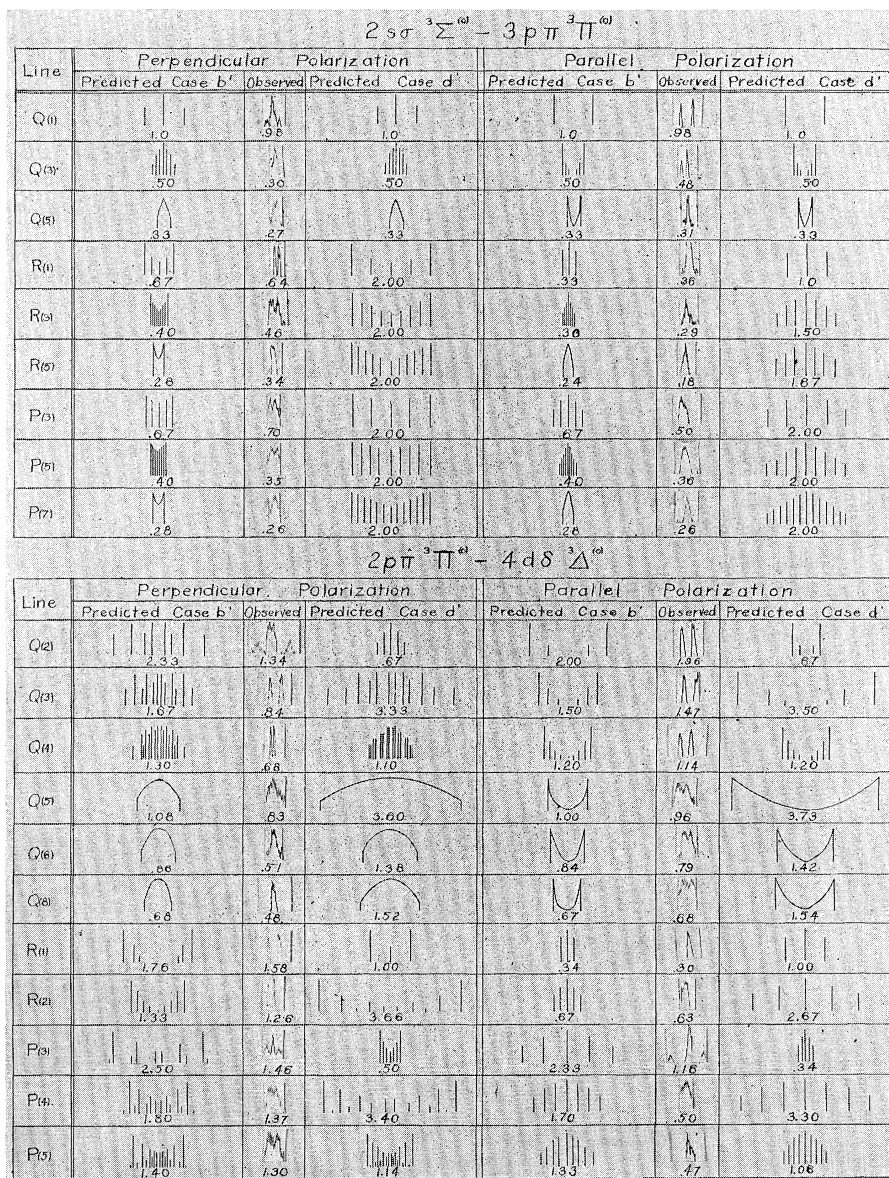 2sσ ³Σ⁽ᵒ⁾ – 3pπ ³Π⁽ᵒ⁾
Line Perpendicular Polarization Parallel Polarization
Predicted Case b' Observed Predicted Case d' Predicted Case b' Observed Predicted Case d'
Q(1) 1.0 .98 1.0 1.0 .98 1.0
Q(3) .50 .30 .50 .50 .48 .50
Q(5) .33 .27 .33 .33 .31 .33
R(1) .67 .64 2.00 .33 .36 1.0
R(3) .40 .46 2.00 .30 .29 1.50
R(5) .28 .34 2.00 .24 .18 1.67
P(3) .67 .70 2.00 .67 .50 2.00
P(5) .40 .35 2.00 .40 .36 2.00
P(7) .28 .26 2.00 .28 .26 2.00
2pπ ³Π⁽ᶜ⁾ – 4dδ ³Δ⁽ᶜ⁾
Line Perpendicular Polarization Parallel Polarization
Predicted Case b' Observed Predicted Case d' Predicted Case b' Observed Predicted Case d'
Q(2) 2.33 1.34 .67 2.00 1.96 .67
Q(3) 1.67 .84 3.33 1.50 1.47 3.50
Q(4) 1.30 .68 1.10 1.20 1.14 1.20
Q(5) 1.08 .83 3.60 1.00 .96 3.73
Q(6) .88 .57 1.38 .84 .79 1.42
Q(8) .68 .48 1.52 .67 .68 1.54
R(1) 1.76 1.58 1.00 .34 .30 1.00
R(2) 1.33 1.26 3.66 .67 .63 2.67
P(3) 2.50 1.46 .50 2.33 1.16 .34
P(4) 1.80 1.37 3.40 1.70 .50 3.30
P(5) 1.40 1.30 1.14 1.33 .47 1.08